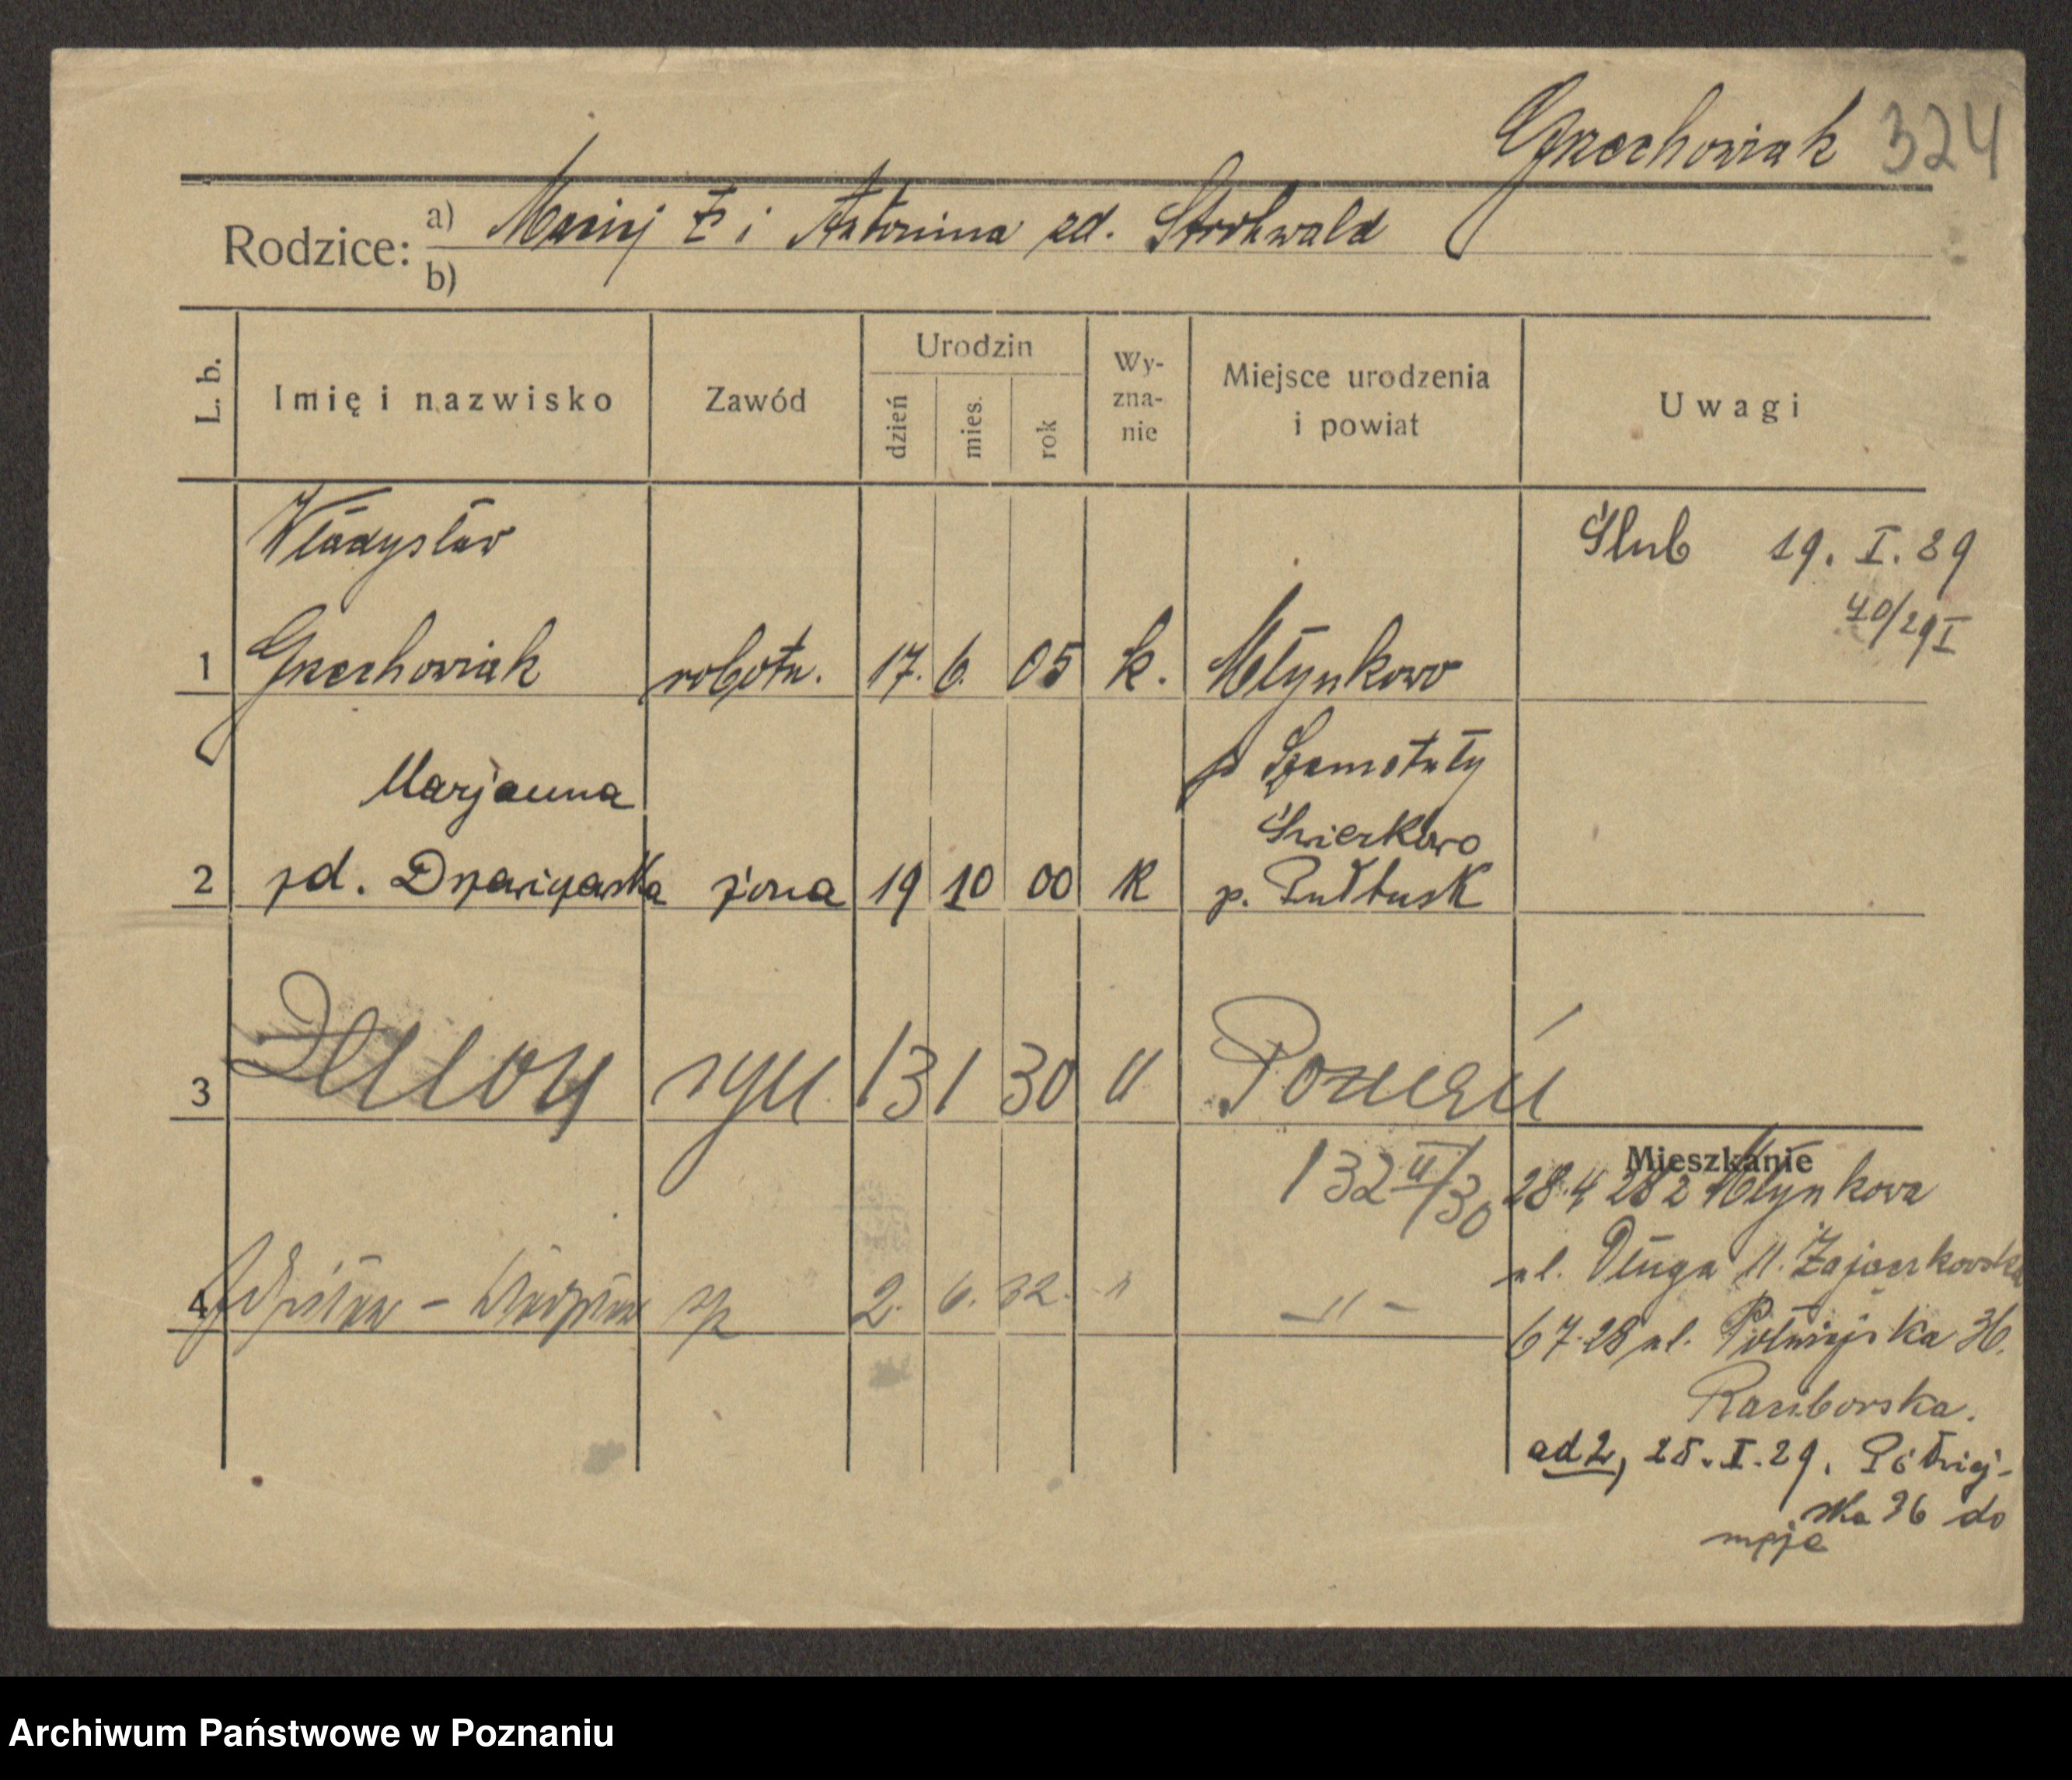 Grzechowiak 324
Rodzice: a) Maciej i Antonina zd. Strohwald
b)
L. b. Imię i nazwisko Zawód Urodzin dzień mies. rok Wy-zna-nie Miejsce urodzenia i powiat Uwagi
Władysław Ślub 19. I. 29
40/29 I
1 Grzechowiak robotn. 17. 6. 05 k. Młynkowo
p Szamotuły
Marjanna Świerkowo
2 zd. żona 19 10 00 k p. Pułtusk
3 Zenon syn 13 1 30 " Poznań
132 II/30
Mieszkanie
28.4 28 z Młynkowa
ul. Długa 11. Zajączkowska
4 2. 6. 32. " - " -
6 7.28 ul. Półwiejska 36.
Raciborska.
ad 2, 25. I. 29. Półwiej-
ska 36 do
męża
Archiwum Państwowe w Poznaniu